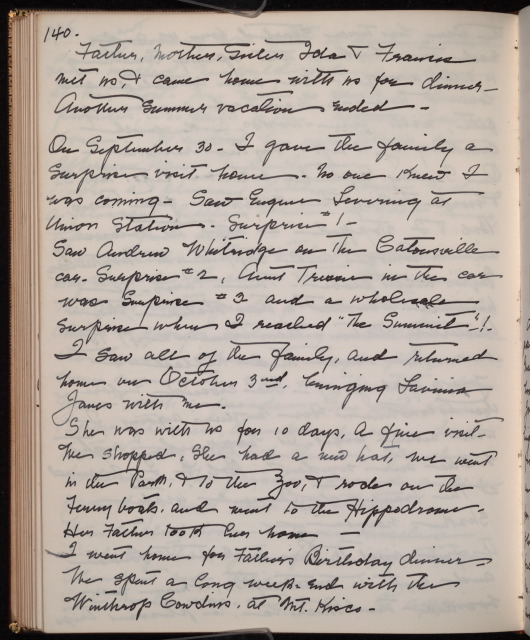 140.
Father, Mother, Sisters Ida & Francis
met us, & came home with us for dinner -
Another Summer vacation ended -
On September 30 - I gave the family a
Surprise visit home - No one knew I
was coming - Saw Eugene Levering at
Union Station. Surprise #1 -
Saw Andrew Whitridge on the Catonsville
car - Surprise #2, Aunt in the car
was Surprise #3 and a wholesale
Surprise when I reached "The Summit"! -
I saw all of the family, and returned
home on October 3rd, bringing Lavinia
Janes with me.
She was with us for 10 days. A fine visit -
We shopped, She had a new hat, we went
in the Park, & to the Zoo, & rode on the
Ferry boats. and went to the Hippodrome -
Her Father took her home -
I went home for Father's Birthday dinner -
We spent a long week-end with the
Winthrop Cowdins. at Mt. Kisco -